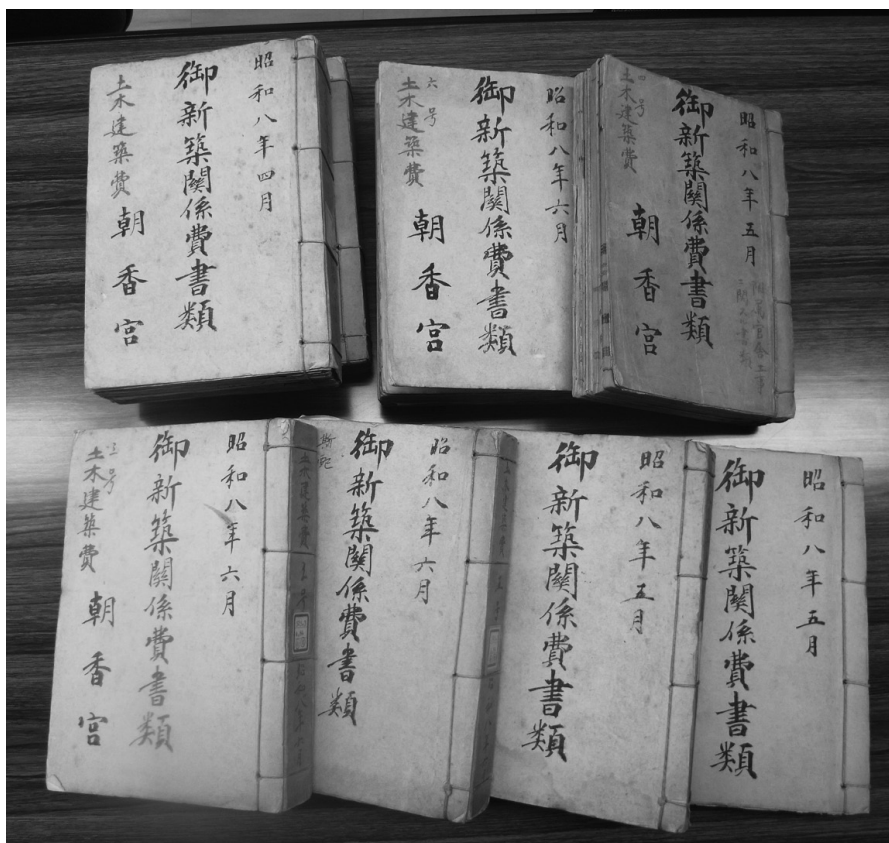 昭和八年四月
御新築關係費書類
土木建築費
朝香宮
昭和八年六月
御新築關係費書類
六号
土木建築費
朝香宮
昭和八年五月
御新築關係費書類
号
土木建築費
朝香宮
昭和八年六月
御新築關係費書類
号
土木建築費
朝香宮
昭和八年六月
御新築關係費書類
昭和八年五月
御新築關係費書類
昭和八年五月
御新築關係費書類